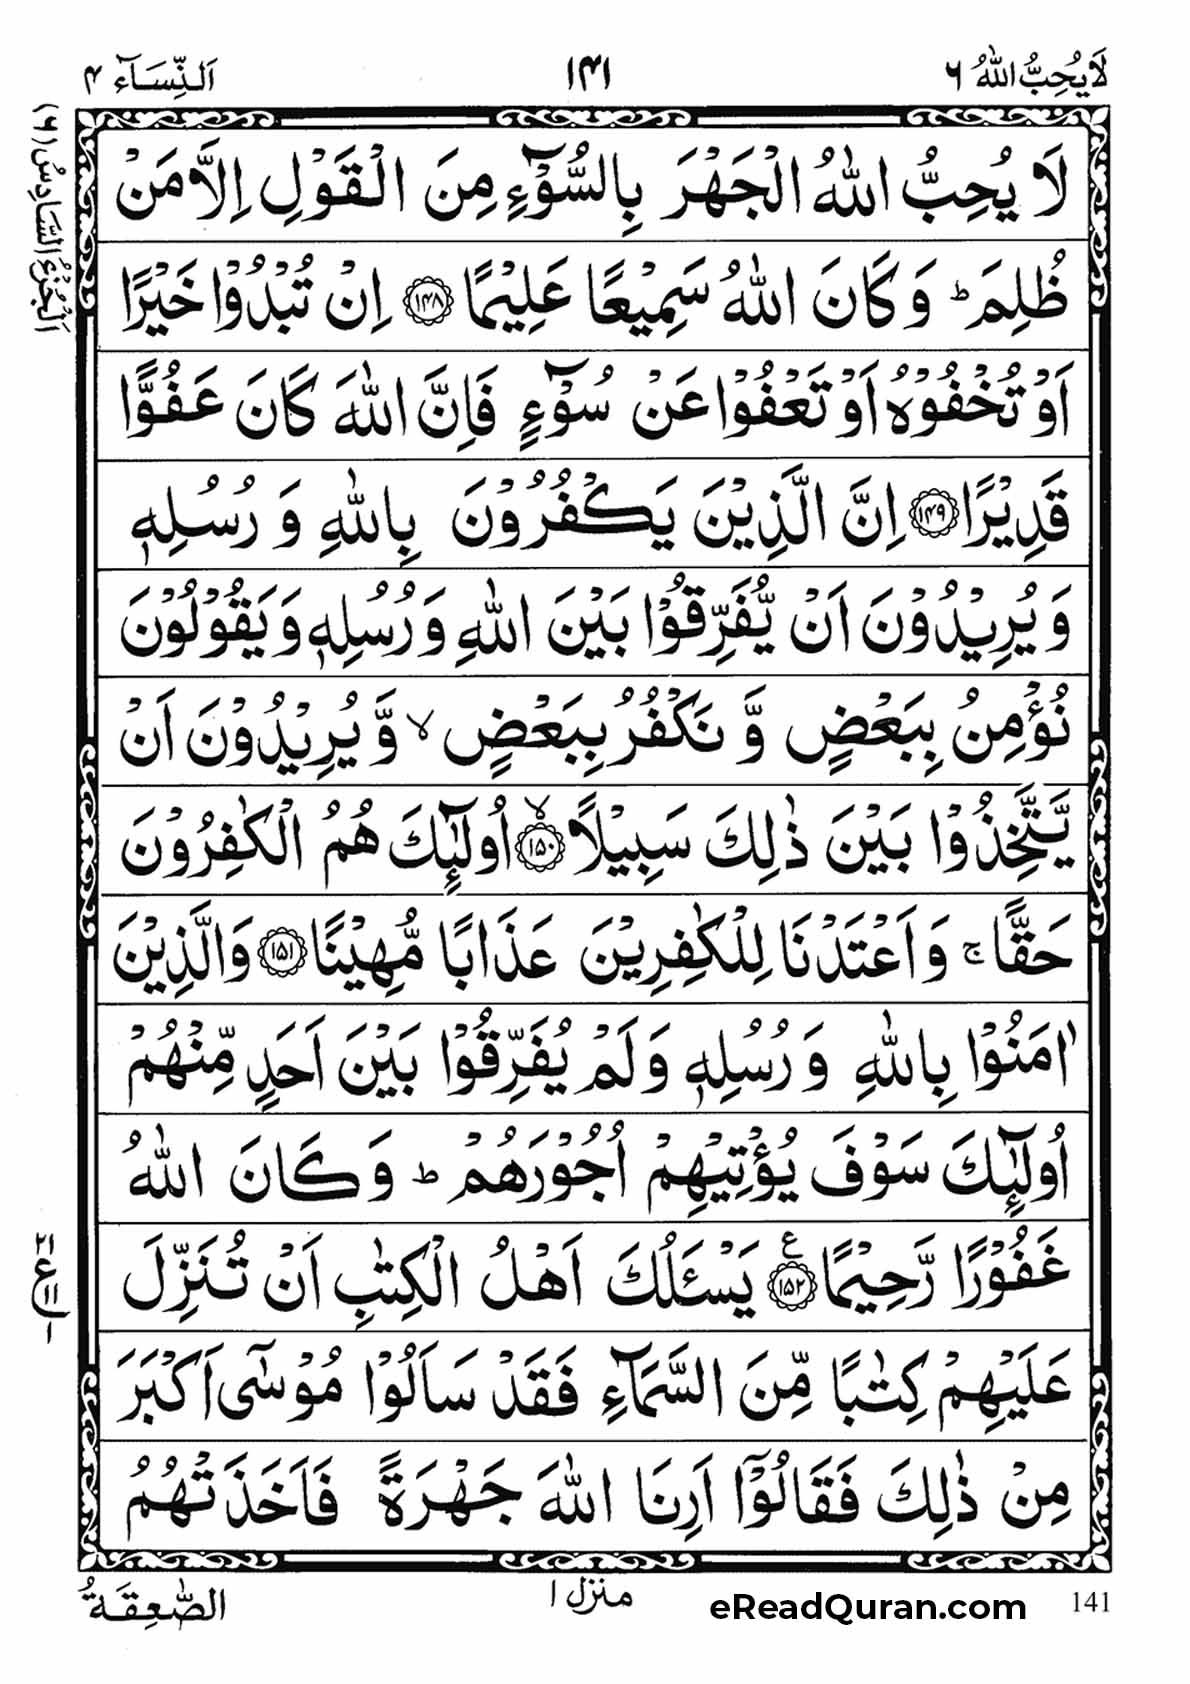 لَا يُحِبُّ اللّٰهُ ٦
١٤١
اَلنِّسَآء ٤
اَلْجُزْءُ السَّادِسُ (٦)
لَا يُحِبُّ اللّٰهُ الْجَهْرَ بِالسُّوْٓءِ مِنَ الْقَوْلِ اِلَّا مَنْ
ظُلِمَ ؕ وَ كَانَ اللّٰهُ سَمِيْعًا عَلِيْمًا ﴿۱۴۸﴾ اِنْ تُبْدُوْا خَيْرًا
اَوْ تُخْفُوْهُ اَوْ تَعْفُوْا عَنْ سُوْٓءٍ فَاِنَّ اللّٰهَ كَانَ عَفُوًّا
قَدِيْرًا ﴿۱۴۹﴾ اِنَّ الَّذِيْنَ يَكْفُرُوْنَ بِاللّٰهِ وَ رُسُلِهٖ
وَ يُرِيْدُوْنَ اَنْ يُّفَرِّقُوْا بَيْنَ اللّٰهِ وَ رُسُلِهٖ وَ يَقُوْلُوْنَ
نُؤْمِنُ بِبَعْضٍ وَّ نَكْفُرُ بِبَعْضٍ ۙ وَّ يُرِيْدُوْنَ اَنْ
يَّتَّخِذُوْا بَيْنَ ذٰلِكَ سَبِيْلًا ﴿۱۵۰﴾ ۙ اُولٰٓئِكَ هُمُ الْكٰفِرُوْنَ
حَقًّا ۚ وَ اَعْتَدْنَا لِلْكٰفِرِيْنَ عَذَابًا مُّهِيْنًا ﴿۱۵۱﴾ وَالَّذِيْنَ
اٰمَنُوْا بِاللّٰهِ وَ رُسُلِهٖ وَ لَمْ يُفَرِّقُوْا بَيْنَ اَحَدٍ مِّنْهُمْ
اُولٰٓئِكَ سَوْفَ يُؤْتِيْهِمْ اُجُوْرَهُمْ ؕ وَ كَانَ اللّٰهُ
غَفُوْرًا رَّحِيْمًا ﴿۱۵۲﴾ ع يَسْـَٔلُكَ اَهْلُ الْكِتٰبِ اَنْ تُنَزِّلَ
عَلَيْهِمْ كِتٰبًا مِّنَ السَّمَآءِ فَقَدْ سَاَلُوْا مُوْسٰٓى اَكْبَرَ
مِنْ ذٰلِكَ فَقَالُوْٓا اَرِنَا اللّٰهَ جَهْرَةً فَاَخَذَتْهُمُ
الصّٰعِقَةُ
منزل ١
eReadQuran.com
141